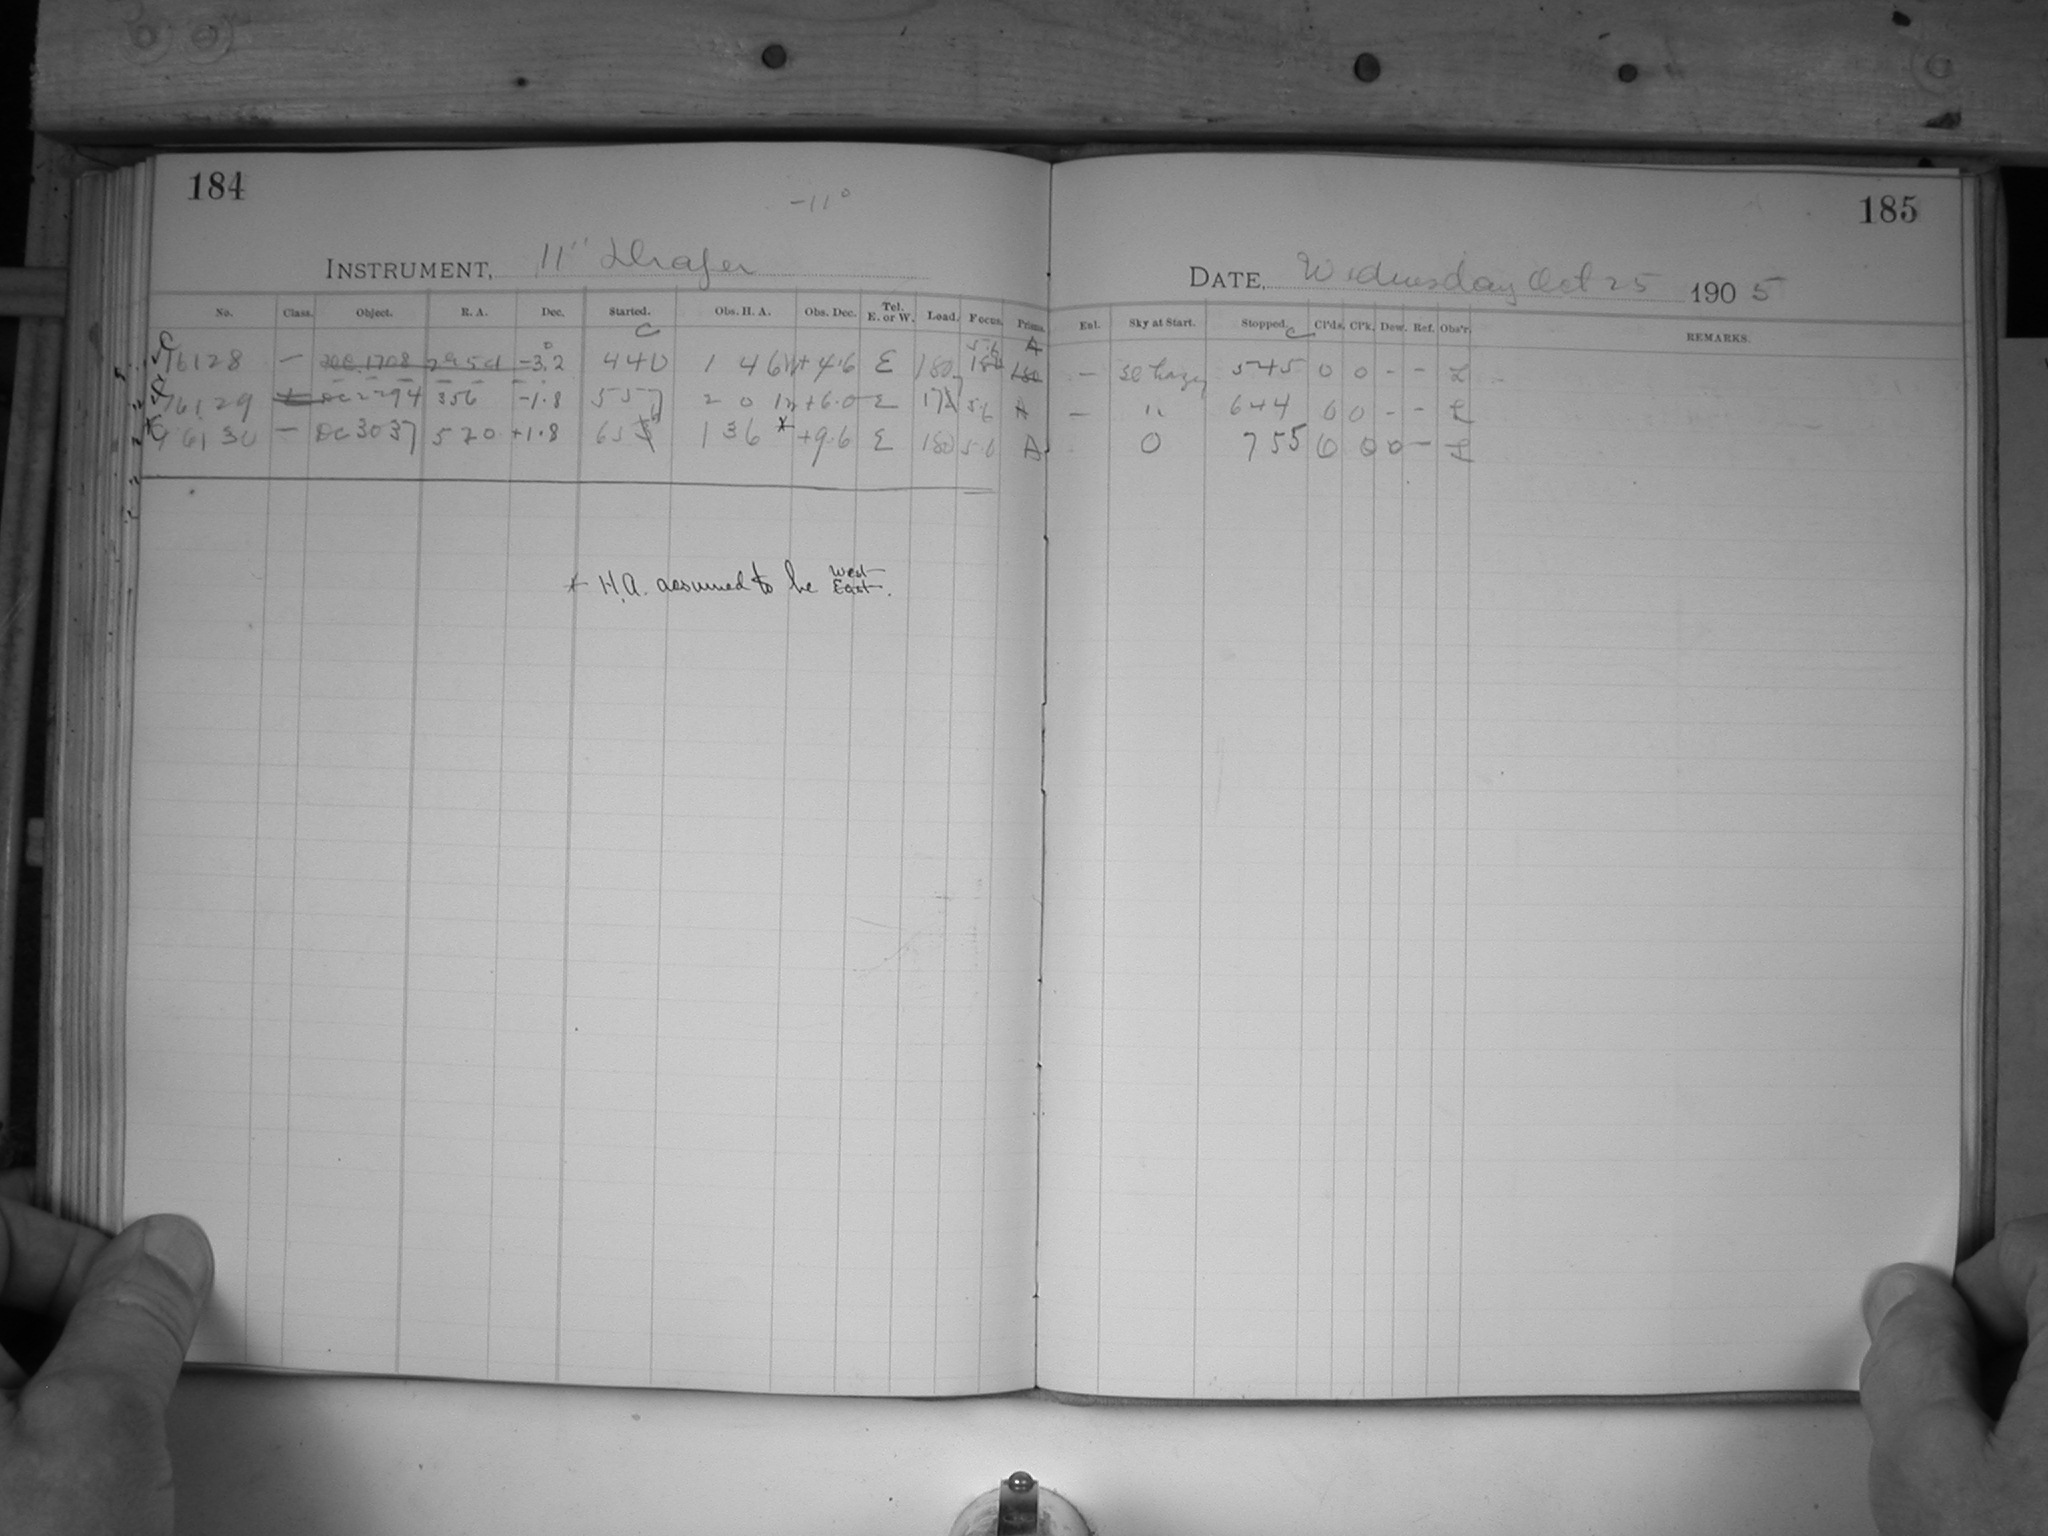 184
-11°
INSTRUMENT, 11" Draper
No. Class. Object. R. A. Dec. Started. Obs. H. A. Obs. Dec. Tel. E. or W. Load. Focus. Prisms.
C 5.6 A
76128 — -3.2 440 1 46 +4.6 E 180
76129 356 -1.8 557 2 0 +6.0 E 5.6 A
76130 — DC 3037 520 +1.8 1 36 * +9.6 E 180 5.6 A
* H.A. assumed to be West
East.
185
DATE, Wednesday Oct 25 1905
Enl. Sky at Start. Stopped. Cl'ds. Cl'k. Dew. Ref. Obs'r. REMARKS.
C
— Sl hazy 545 0 0 - - L
— " 644 0 0 - - L
0 755 0 0 0 — L